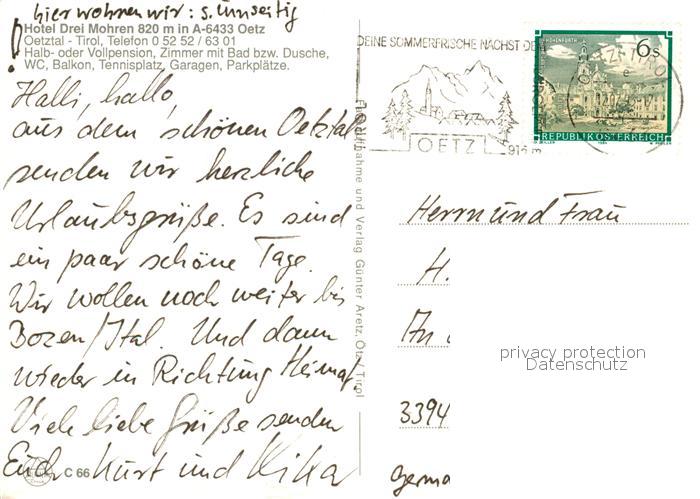 hier wohnen wir: s. Umseitig
Hotel Drei Mohren 820 m in A-6433 Oetz
Oetztal - Tirol, Telefon 0 52 52 / 63 01
Halb- oder Vollpension, Zimmer mit Bad bzw. Dusche,
WC, Balkon, Tennisplatz, Garagen, Parkplätze.
Halli, hallo,
aus dem schönen Oetztal
senden wir herzliche
Urlaubsgrüße. Es sind
ein paar schöne Tage.
Wir wollen noch weiter bis
Bozen/Ital. Und dann
wieder in Richtung Heimat.
Viele liebe Grüße senden
Euch Kurt und
C 66
Aufnahme und Verlag Günter Aretz, Ötz / Tirol
DEINE SOMMERFRISCHE NÄCHST DEM
OETZ
6 S
REPUBLIK ÖSTERREICH
Herrn und Frau
H.
An
3394
Germa
privacy protection
Datenschutz